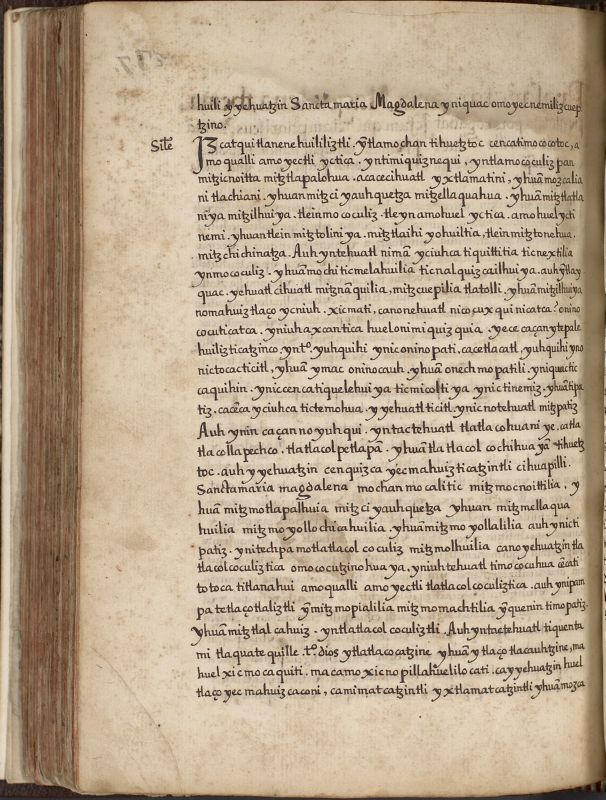 huili y yehuatzin Sancta maria Magdalena yniquac omoyecnemilizcuep
tzino.
Sile
Jzcatqui tlanenehuililiztli. ỹtlamochan tihuetztoc cencatimococotoc, a
mo qualli amo yectli yctica. yntimiquiznequi, yntlamococuliz pan
mitzicnoitta mitztlapalohua. aca cecihuatl yxtlamatini, yhuãmozcalia
ni tlachiani. yhuan mitzciyauhquetza mitzellaquahua. yhuã mitztlatla
niya mitzilhuiya. tlein mococuliz. tleyn amohuel yctica. amohuel ycti
nemi. yhuan tlein mitztoliniya. mitztlaihiyohuiltia, tlein mitztonehua.
mitzchichinatza. Auh yn tehuatl nimã yciuhca tiquittitia ticnextilia
yn mococuliz. yhuã mochi ticmelahuilia ticnalquizcailhuiya. auh ỹtlay
quac. yehuatl cihuatl mitznãquilia, mitzcuepilia tlatolli. yhuã mitzilhuiya
nomahuiztlaço ycniuh. xicmati, canonehuatl nicocuxquicatca? onino
cocuticatca. yniuh axcan tica huelonimiquizquia. yece caçan ytepale
huiliztica tzinco. yn t.º yuhquihi ynic oninopati. cacetlacatl, yuhquihi yno
nictocacticitl, yhuã ymac oninocauh. yhuã onechmopatili. yniquactic
caquihin. ynic cencatiquelehuiya ticmicoltiya ynic tinemiz. yhuã tipa
tiz. cacẽca yciuhca tictemohua y yehuatl ticitl, ynic notehuatl mitzpatiz
Auh ynin caçan no yuhqui. yntac tehuatl tlatlacohuani ye. catla
tlacollapechco. tlatlacolpetlapã. yhuã tlatlacol cochihuayã tihuetz
toc. auh y yehuatzin cenquizca yecmahuizticatzintli cihuapilli.
Sancta maria magdalena mochan mocalitic mitzmocnoittilia, y
huã mitzmotlapalhuia mitzciyauhquetza yhuan mitzmellaqua
huilia mitzmoyollochicahuilia. yhuãmitzmoyollalilia auh ynicti
patiz. ynitechpa motlatlacol coculiz mitzmolhuilia cano yehuatzin tla
tlacol coculiztica omococutzinohuaya, yniuh tehuatl timococuhua cẽcati
totoca titlanahui amo qualli amo yectli tlatlacol coculiztica. auh ynipam
pa tetlaçotlaliztli ỹmitzmopialilia mitzmomachtilia ỹquenin timopatiz.
yhuã mitztlalcahuiz. yn tlatlacol coculiztli. Auh yntac tehuatl tiquenta
mi tlaquatequille. t.º dios ytlatlacocatzine yhuã ytlaçotlacauhtzine, ma
huel xicmocaquiti. macamo xicnopillahuelilocati. cay yehuatzin huel
tlaço yecmahuizcaconi, camimatcatzintli yxtlamatcatzintli yhuã mozca